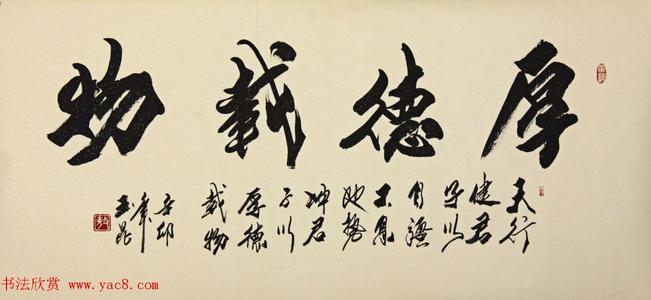 厚德載物
天行
健君
子以
自強
不息
地勢
坤君
子以
厚德
載物
辛卯
年
玉昆
书法欣赏 www.yac8.com